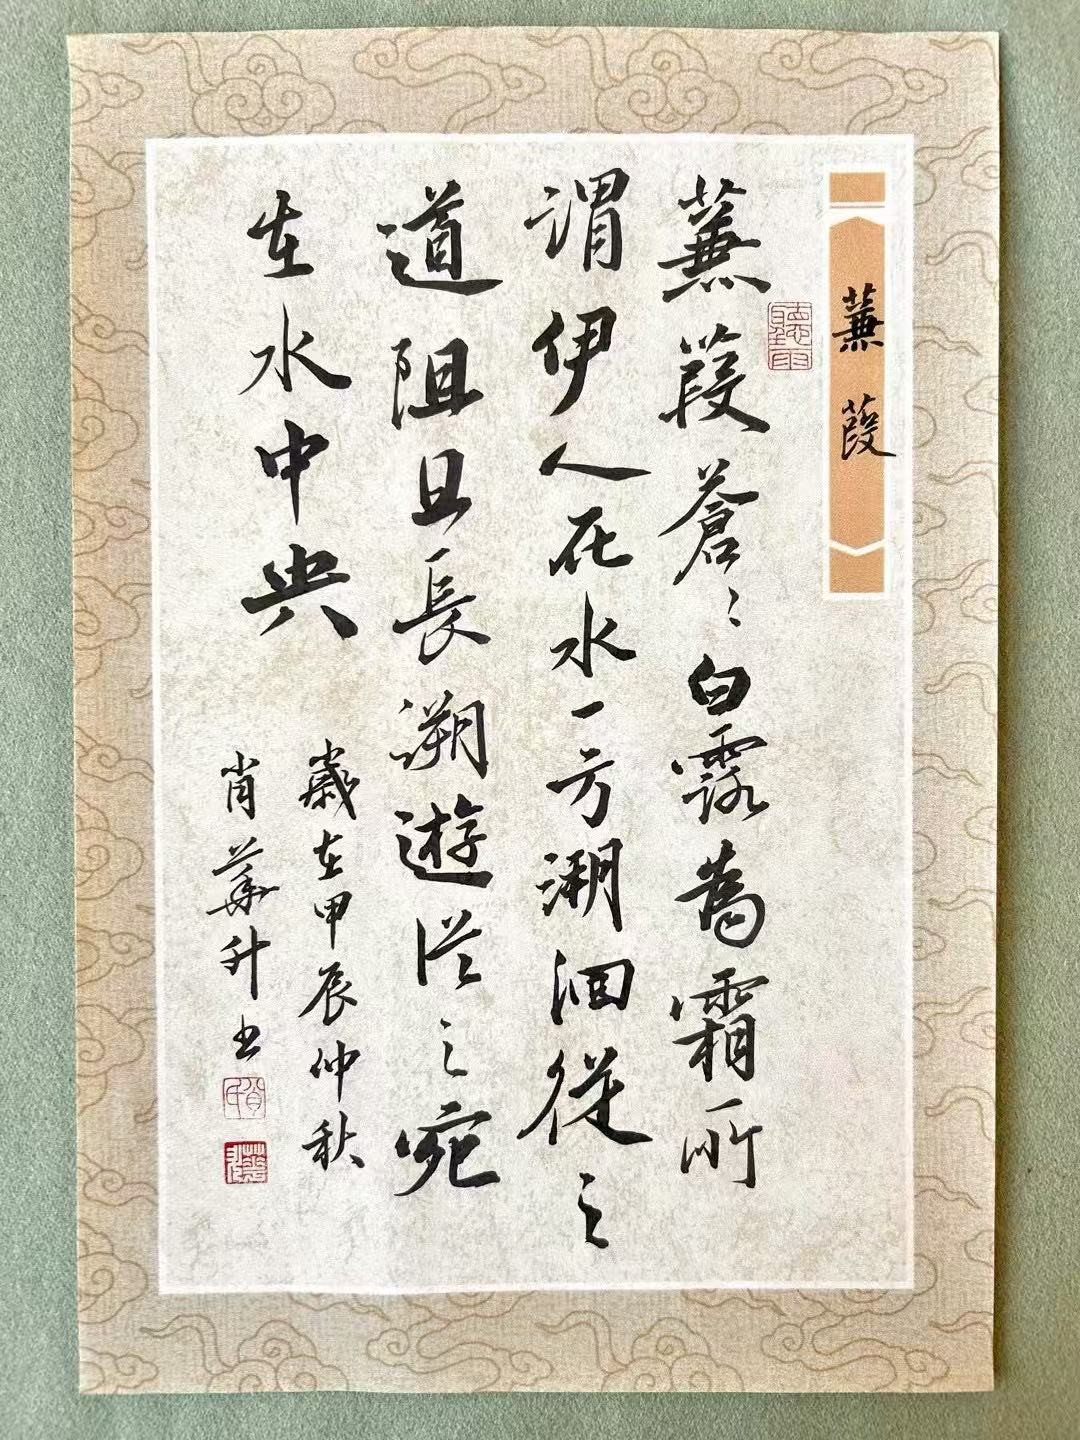 蒹葭
聽雨
蒹葭蒼〻白露為霜所
謂伊人在水一方溯洄從之
道阻且長溯遊從之宛
在水中央
歲在甲辰仲秋
肖華升书